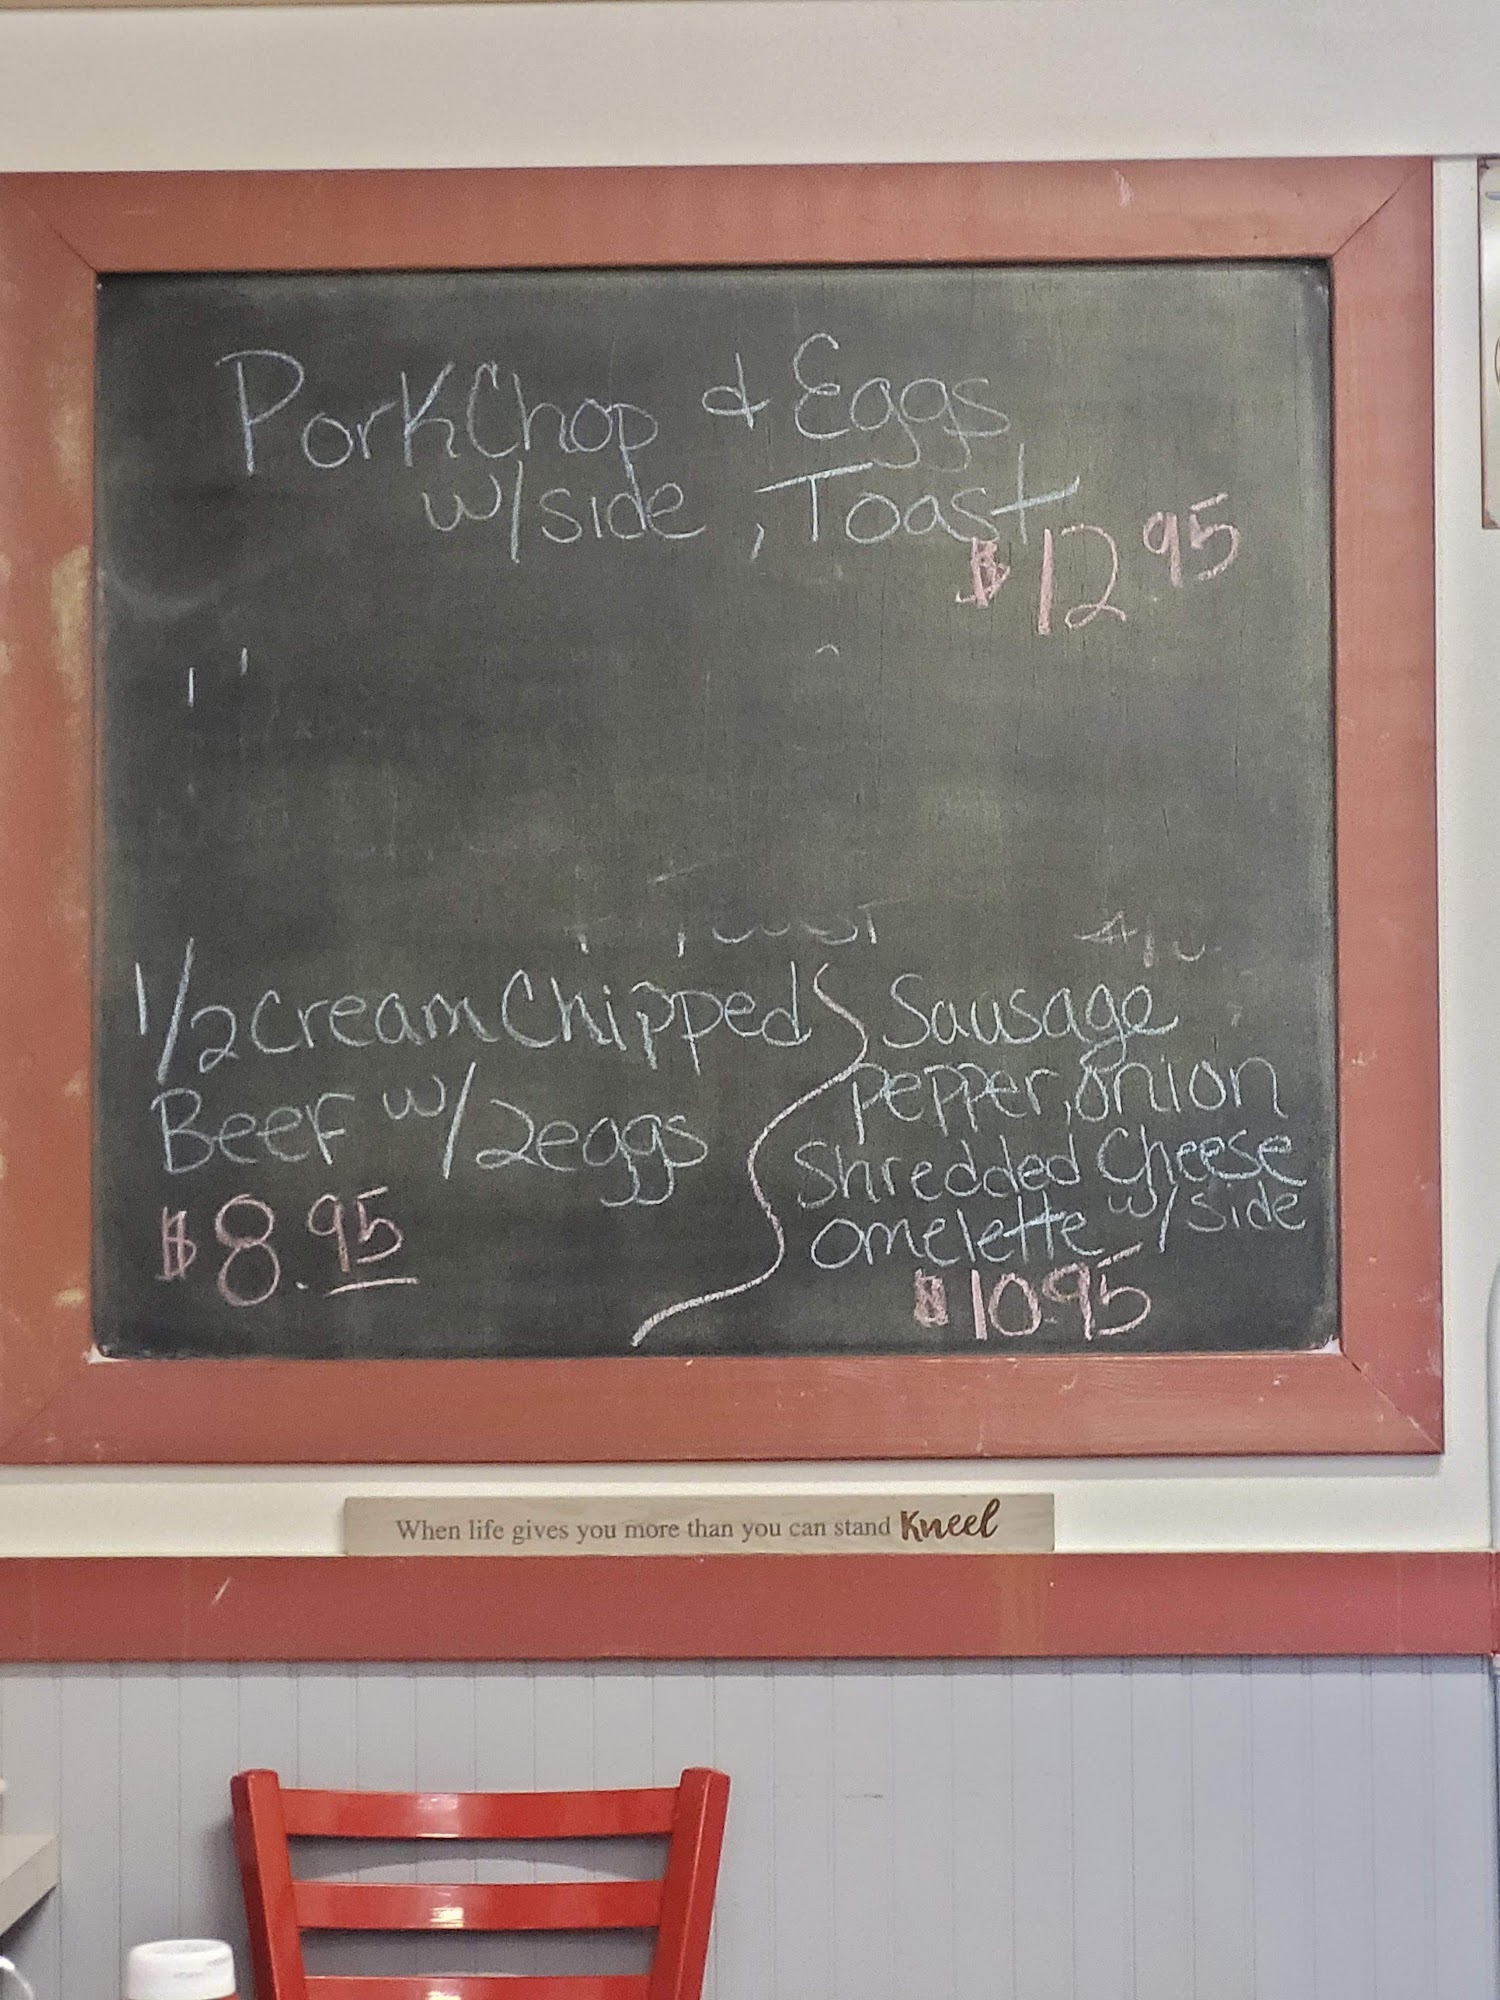 PorkChop & Eggs
w/side, Toast
$12.95
1/2 Cream Chipped
Beef w/2eggs
$8.95
Sausage
pepper, onion
Shredded Cheese
omelette w/side
$10.95
When life gives you more than you can stand Kneel